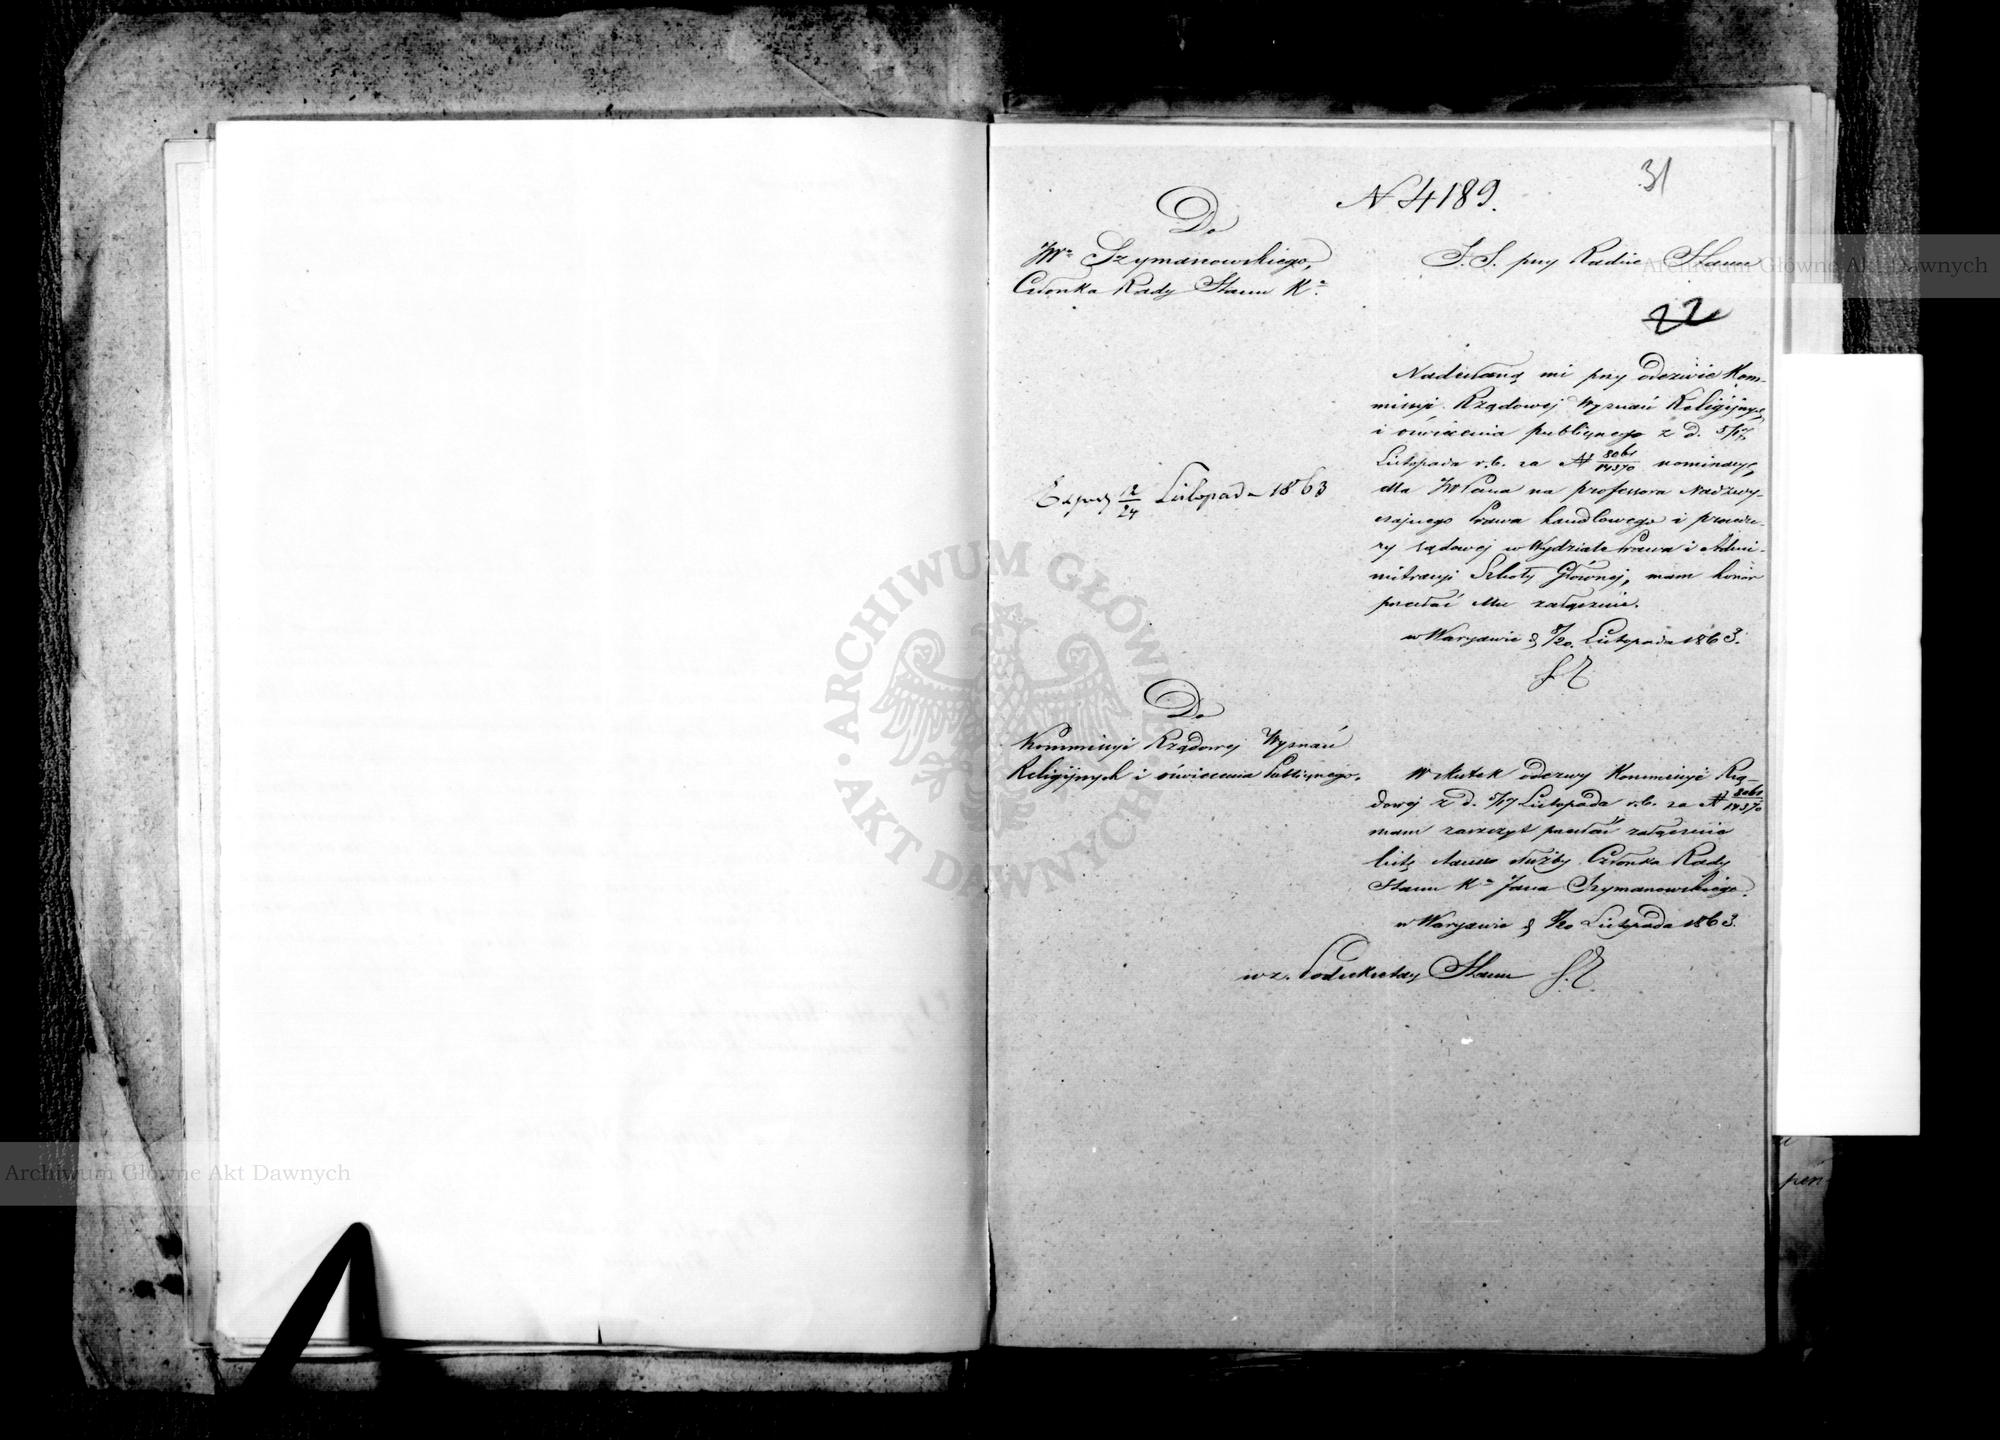 31
N 4189.
Do
JW° Szymanowskiego,
Członka Rady Stanu K°.
S. S. przy Radzie Stanu
22
Nadesłaną mi przy odezwie Kom-
missyi Rządowej Wyznań Religijnych
i oświecenia publicznego z d. 5/17
Listopada r.b. za N 8061/14370 nominacyę
dla JW Pana na professora Nadzwy-
czajnego Prawa handlowego i procedu-
ry sądowej w Wydziale Prawa i Admi-
nistracyi Szkoły Głównej, mam honor
przesłać Mu załącznie.
w Warszawie d 8/20 Listopada 1863.
Exped 12/24 Listopada 1863
Do
Kommissyi Rządowej Wyznań
Religijnych i oświecenia Publicznego.
W skutek odezwy Kommissyi Rzą-
dowej z d. 5/17 Listopada r.b. za N 8061/14370
mam zaszczyt przesłać załącznie
listę stanu służby Członka Rady
Stanu K° Jana Szymanowskiego.
w Warszawie d 8/20 Listopada 1863.
w z. Podsekretarz Stanu
ARCHIWUM GŁÓWNE AKT DAWNYCH
Archiwum Główne Akt Dawnych
Archiwum Główne Akt Dawnych